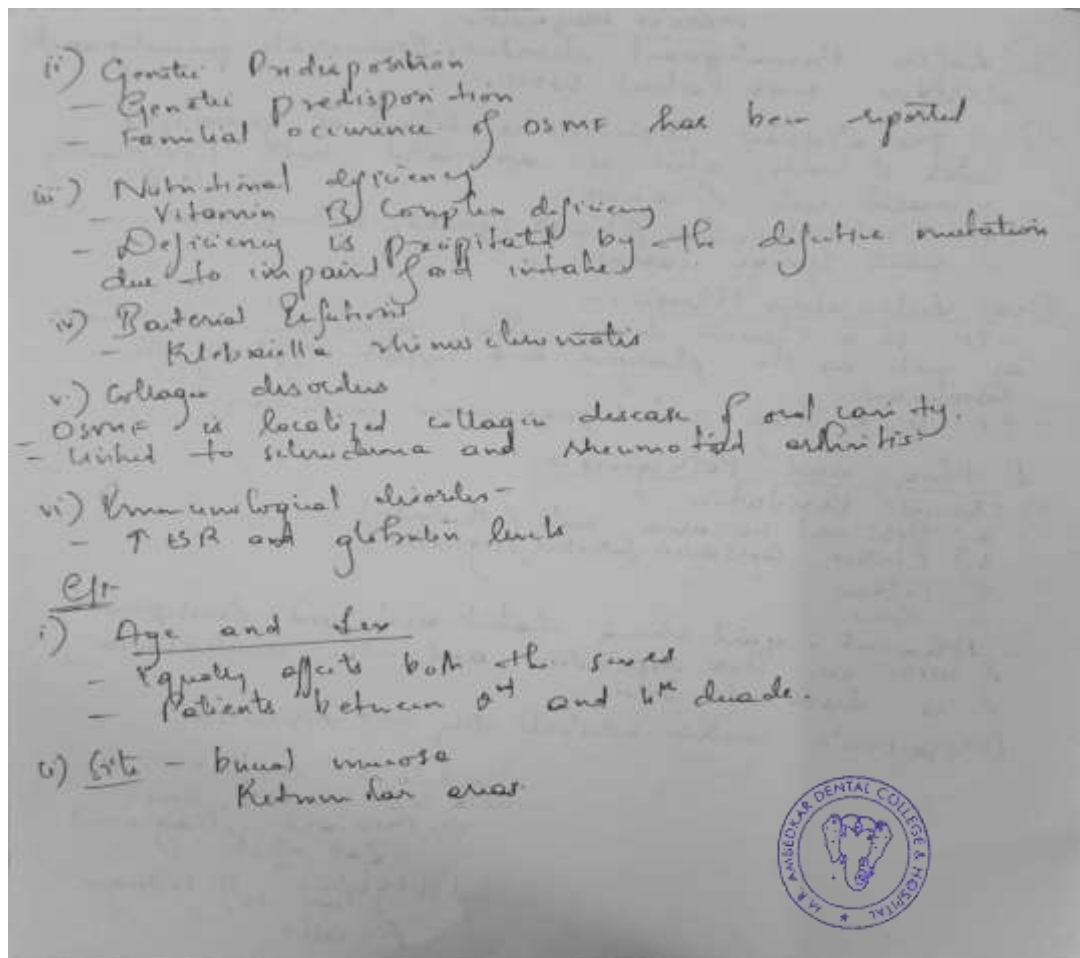 ii) Genetic Predisposition
- Genetic predisposition
- Familial occurence of OSMF has been reported
iii) Nutritional deficiency
- Vitamin B Complex deficiency
- Deficiency is precipitated by the defective nutrition
due to impaired food intake
iv) Bacterial Infections
- Klebsiella
v) Collagen disorders
- OSMF is localized collagen disease of oral cavity.
- Linked to scleroderma and rheumatoid arthritis
vi) Immunological disorders -
- ↑ ESR and globulin levels
C/F
i) Age and Sex
- Equally affects both the sexes
- Patients between 2nd and 4th decade.
Site - buccal mucosa
Retromolar areas
M.R. AMBEDKAR DENTAL COLLEGE & HOSPITAL